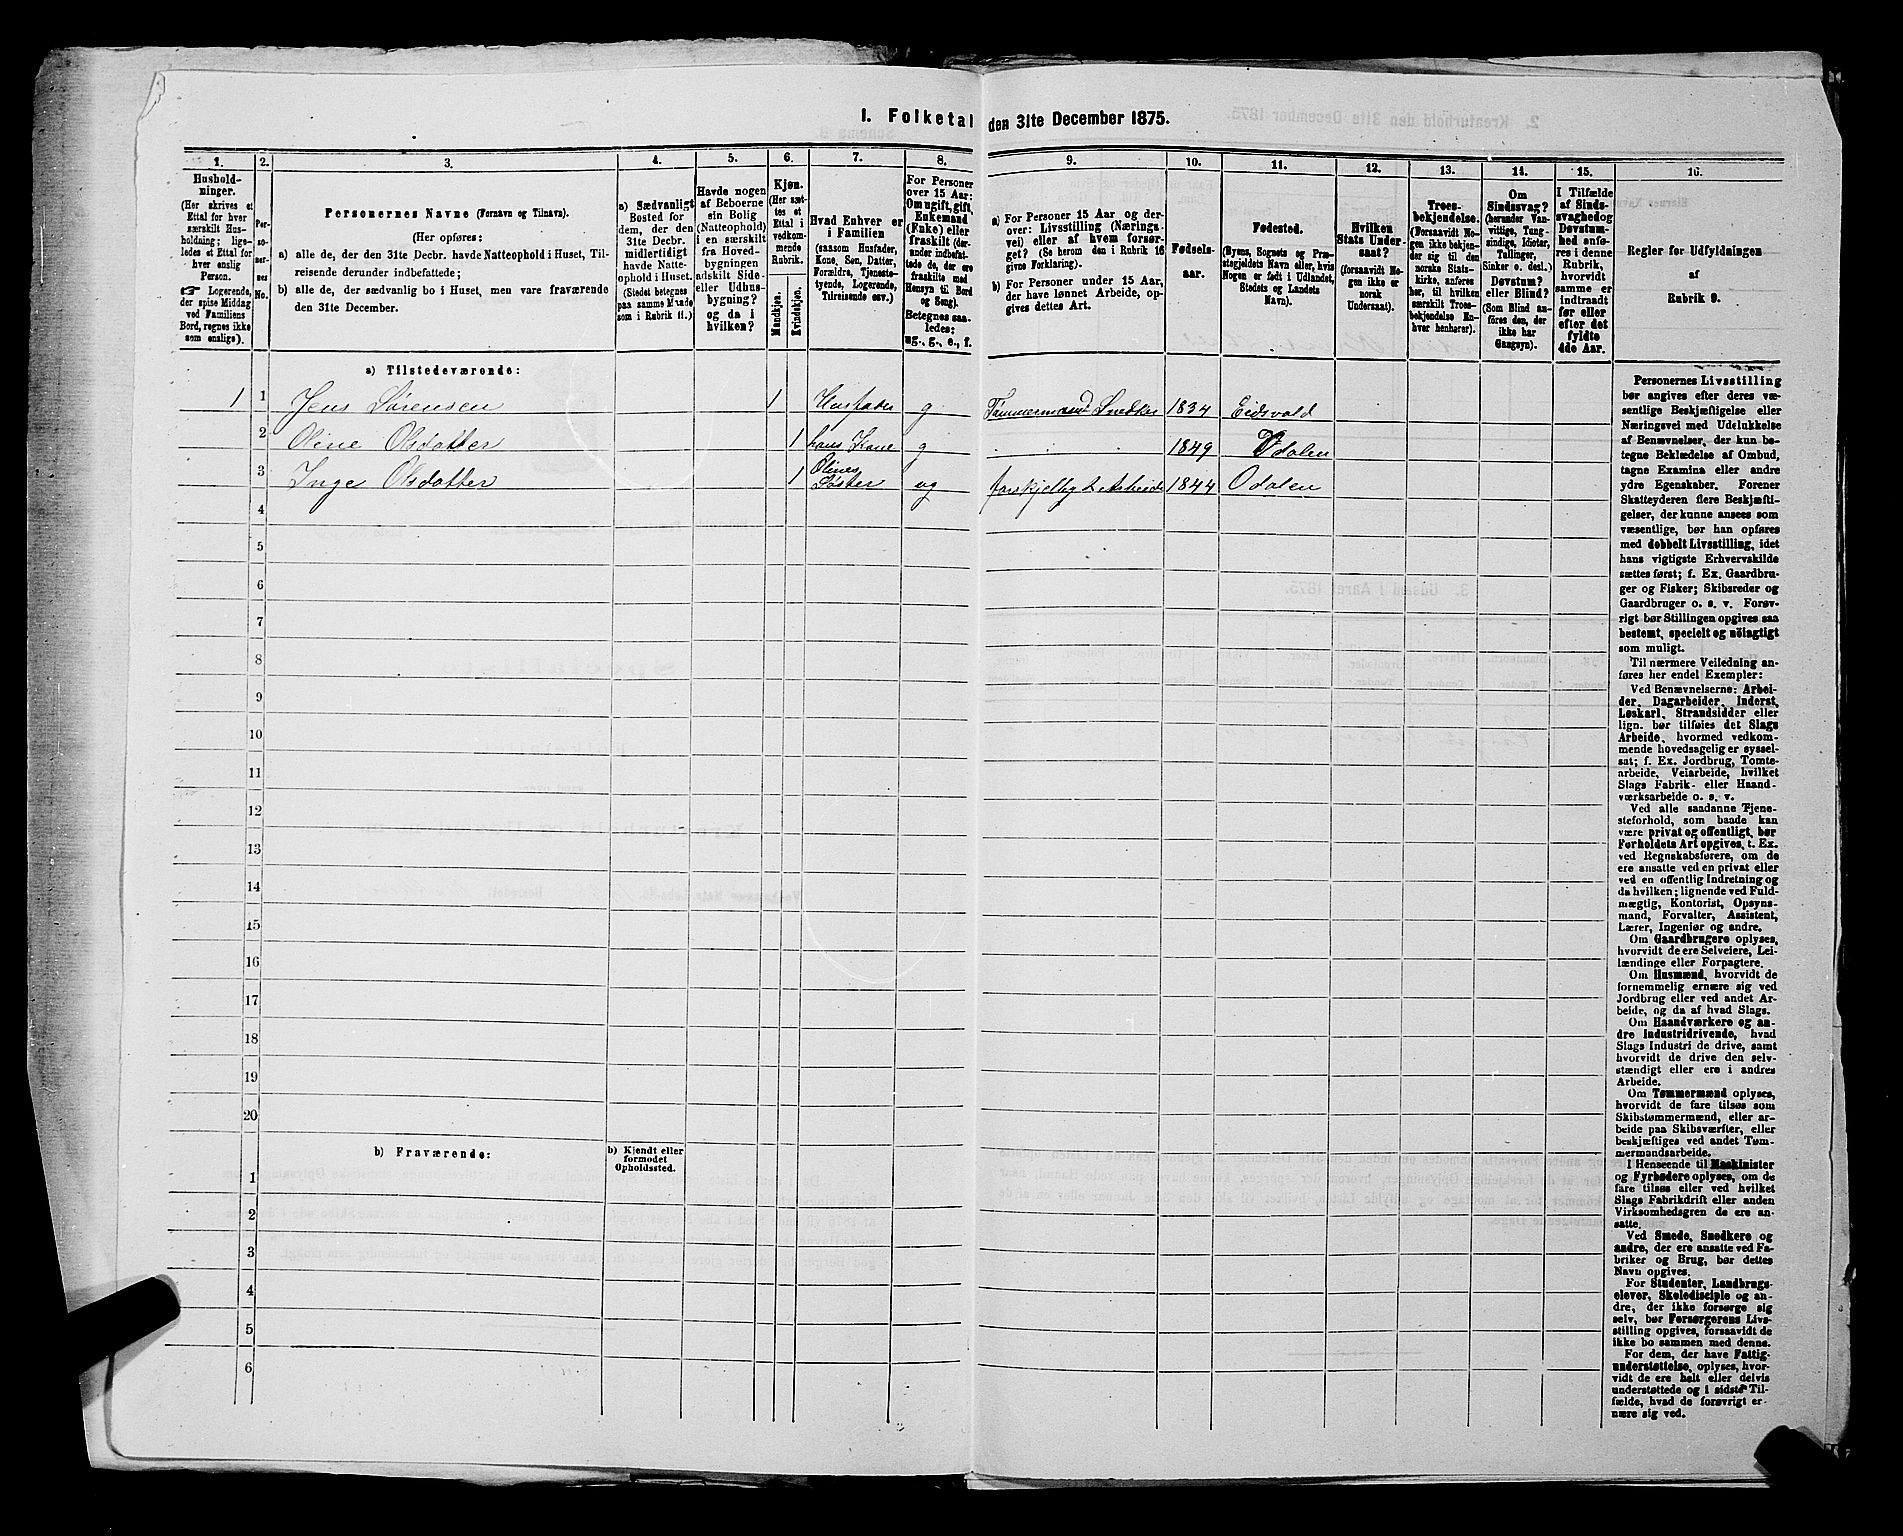 1. Folketal den 31te December 1875.
1.
Hushold-
ninger.
(Her skrives et
Ettal for hver
særskilt Hus-
holdning; lige-
ledes et Ettal for
hver enslig
Person.
☞ Logerende,
der spise Middag
ved Familiens
Bord, regnes ikke
som enslige).
2.
Per-
so-
ner-
nes
No.
3.
Personernes Navne (Fornavn og Tilnavn).
(Her opføres:
a) alle de, der den 31te Decbr. havde Natteophold i Huset, Til-
reisende derunder indbefattede;
b) alle de, der sædvanlig bo i Huset, men vare fraværende
den 31te December.
4.
a) Sædvanligt
Bosted for
dem, der den
31te Decbr.
midlertidigt
havde Natte-
ophold i Huset.
(Stedet betegnes
paa samme Maade
som i Rubrik 11.)
5.
Havde nogen
af Beboerne
sin Bolig
(Natteophold)
i en særskilt
fra Hoved-
bygningen
adskilt Side-
eller Udhus-
bygning?
og da i
hvilken?
6.
Kjøn.
(Her sæt-
tes et
Ettal i
vedkom-
mende
Rubrik.
Mandkjøn.
Kvindekjøn.
7.
Hvad Enhver er
i Familien
(saasom Husfader,
Kone, Søn, Datter,
Forældre, Tjeneste-
tyende, Logerende,
Tilreisende osv.)
8.
For Personer
over 15 Aar:
Om ugift, gift,
Enkemand
(Enke) eller
fraskilt (der-
under indbefat-
tede de, der ere
fraskilte med
Hensyn til Bord
og Seng).
Betegnes saa-
ledes:
ug., g., e., f.
9.
a) For Personer 15 Aar og der-
over: Livsstilling (Nærings-
vei) eller af hvem forsør-
get? (Se herom den i Rubrik 16
givne Forklaring).
b) For Personer under 15 Aar,
der have lønnet Arbeide, op-
gives dettes Art.
10.
Fødsels-
aar.
11.
Fødested.
(Byens, Sognets og Præ-
stegjeldets Navn eller, hvis
Nogen er født i Udlandet,
Stedets og Landets
Navn).
12.
Hvilken
Stats Under-
saat?
(forsaavidt No-
gen ikke er
norsk
Undersaat).
13.
Troes-
bekjendelse.
(Forsaavidt No-
gen ikke bekjen-
der sig til den
norske Stats-
kirke, anføres
her, til hvilken
særskilt Troes-
bekjendelse En-
hver henhører).
14.
Om
Sindssvag?
(herunder Van-
vittige, Tung-
sindige, Idioter,
Tullinger,
Sinker o. desl.)
Døvstum?
eller Blind?
(Som Blind an-
føres den, der
ikke har
Gangsyn).
15.
I Tilfælde
af Sinds-
svaghed og
Døvstum-
hed anfø-
res i denne
Rubrik,
hvorvidt
samme er
indtraadt
før eller
efter det
fyldte
4de Aar.
16.
Regler for Udfyldningen
af
Rubrik 9.
a) Tilstedeværende:
1 1 Jens Sørensen 1 Husfader g Tømmermand Snedker 1834 Eidsvold
2 Oline Olsdatter 1 hans Kone g 1849 Odalen
3 Inge Olsdatter 1 Olines Søster ug 1844 Odalen
4
5
6
7
8
9
10
11
12
13
14
15
16
17
18
19
20
b) Fraværende:
b) Kjendt eller
formodet
Opholdssted.
1
2
3
4
5
6
Personernes Livsstilling
bør angives efter deres væ-
sentlige Beskjæftigelse eller
Næringsvei med Udelukkelse
af Benævnelser, der kun be-
tegne Beklædelse af Ombud,
tagne Examina eller andre
ydre Egenskaber. Forener
Skatteyderen flere Beskjæfti-
gelser, der kunne ansees som
væsentlige, bør han opføres
med dobbelt Livsstilling, idet
hans vigtigste Erhvervskilde
sættes først; f. Ex. Gaardbru-
ger og Fisker; Skibsreder og
Gaardbruger o. s. v. Forøv-
rigt bør Stillingen opgives saa
bestemt, specielt og nöiagtigt
som muligt.
Til nærmere Veiledning an-
føres her endel Exempler:
Ved Benævnelserne: Arbei-
der, Dagarbeider, Inderst,
Løskarl, Strandsidder eller
lign. bør tilføies det Slags
Arbeide, hvormed vedkom-
mende hovedsagelig er syssel-
sat; f. Ex. Jordbrug, Tomte-
arbeide, Veiarbeide, hvilket
Slags Fabrik- eller Haand-
værksarbeide o. s. v.
Ved alle saadanne Tjene-
steforhold, som baade kan
være privat og offentligt, bør
Forholdets Art opgives, t. Ex.
ved Regnskabsførere, om de
ere ansatte ved en privat eller
ved en offentlig Indretning og
da hvilken; lignende ved Fuld-
mægtig, Kontorist, Opsyns-
mand, Forvalter, Assistent,
Lærer, Ingeniør og andre.
Om Gaardbrugere oplyses,
hvorvidt de ere Selveiere, Lei-
lændinge eller Forpagtere.
Om Husmænd, hvorvidt de
fornemmelig ernære sig ved
Jordbrug eller ved andet Ar-
beide, og da af hvad Slags.
Om Haandværkere og an-
dre Industridrivende, hvad
Slags Industri de drive, samt
hvorvidt de drive den selv-
stændigt eller ere i andres
Arbeide.
Om Tømmermænd oplyses,
hvorvidt de fare tilsøs som
Skibstømmermænd, eller ar-
beide paa Skibsværfter, eller
beskjæftiges ved andet Tøm-
mermandsarbeide.
I Henseende til Maskinister
og Fyrbødere oplyses, om de
fare tilsøs eller ved hvilket
Slags Fabrikdrift eller anden
Virksomhedsgren de ere an-
satte.
Ved Smede, Snedkere og
andre, der ere ansatte ved Fa-
briker og Brug, bør dettes
Navn opgives.
For Studenter, Landbrugs-
elever, Skoledisciple og an-
dre, der ikke forsørge sig
selv, bør Forsørgerens Livs-
stilling opgives, forsaavidt de
ikke bo sammen med denne.
For dem, der have Fattig-
understøttelse, oplyses, hvor-
vidt de ere helt eller delvis
understøttede og i sidste Til-
fælde, hvad de forøvrigt er-
nære sig ved.